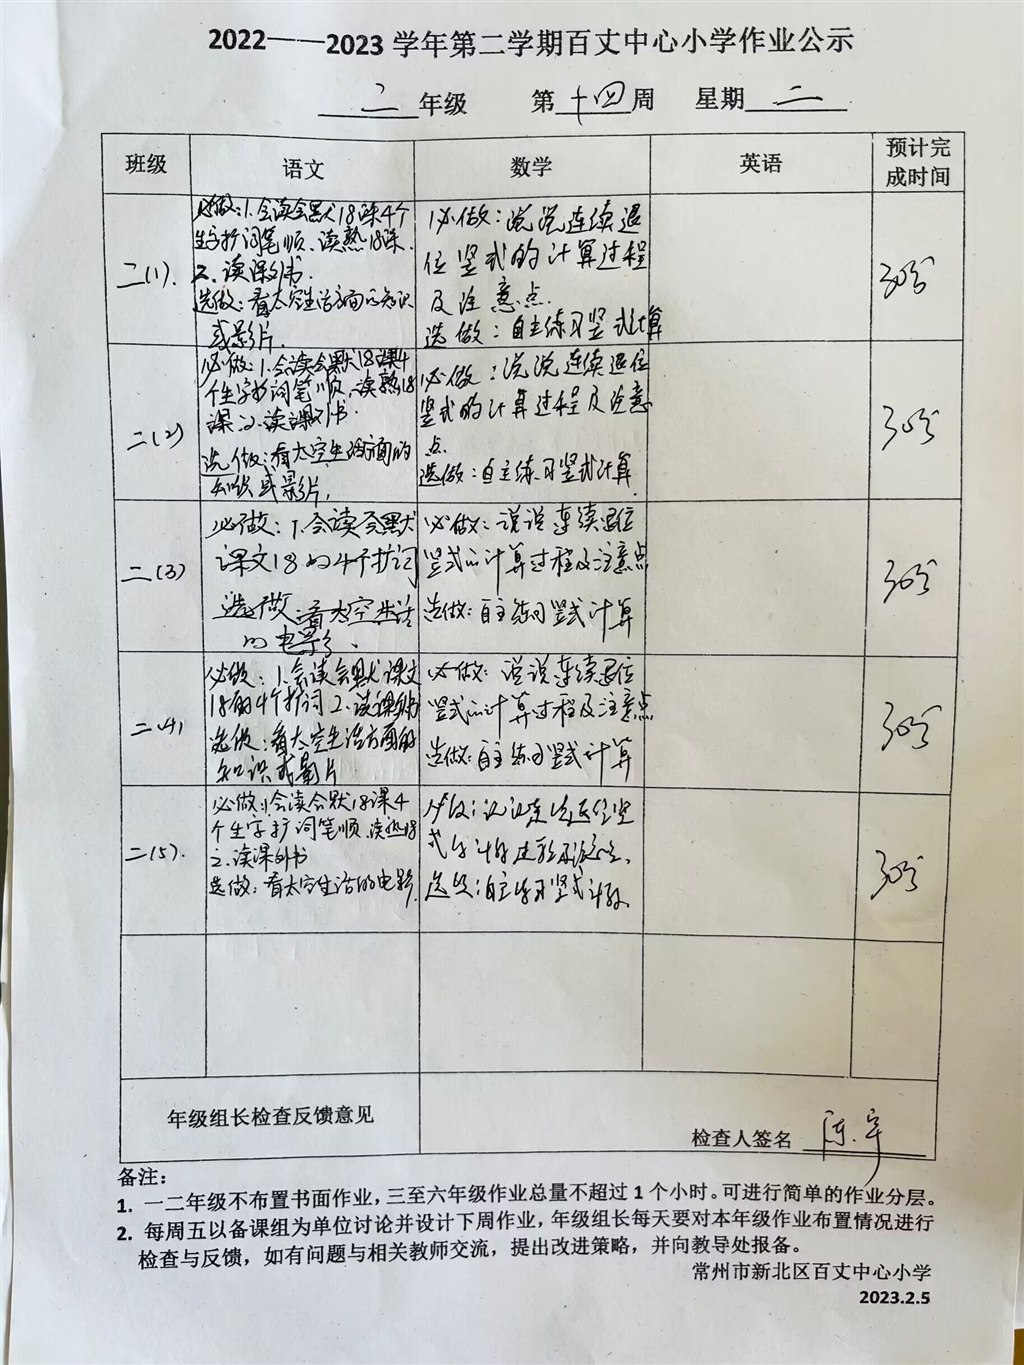 2022——2023学年第二学期百丈中心小学作业公示
二年级 第十四周 星期二
班级 语文 数学 英语 预计完成时间
二(1).
必做:1.会读会默18课4个
生字扩词笔顺.读熟18课.
2.读课外书.
选做:看太空生活方面的知识
或影片.
必做:说说连续退
位竖式的计算过程
及注意点.
选做:自主练习竖式计算
30分
二(2)
必做:1.会读会默18课4
个生字扩词笔顺,读熟18
课.2.读课外书.
选做:看太空生活方面的
知识或影片.
必做:说说连续退位
竖式的计算过程及注意
点.
选做:自主练习竖式计算
30分
二(3)
必做:1.会读会默
课文18的4个扩词
选做:看太空生活
的电影.
必做:说说连续退位
竖式的计算过程及注意点
选做:自主练习竖式计算
30分
二(4)
必做:1.会读会默课文
18的4个扩词2.读课外书
选做:看太空生活方面的
知识或影片
必做:说说连续退位
竖式的计算过程及注意点
选做:自主练习竖式计算
30分
二(5).
必做:1.会读会默18课4
个生字扩词笔顺.读熟18
2.读课外书
选做:看太空生活的电影.
必做:说说连续退位竖
式的计算过程及注意点.
选做:自主练习竖式计算.
30分
年级组长检查反馈意见
检查人签名 陈宇
备注:
1. 一二年级不布置书面作业,三至六年级作业总量不超过1个小时。可进行简单的作业分层。
2. 每周五以备课组为单位讨论并设计下周作业,年级组长每天要对本年级作业布置情况进行
检查与反馈,如有问题与相关教师交流,提出改进策略,并向教导处报备。
常州市新北区百丈中心小学
2023.2.5